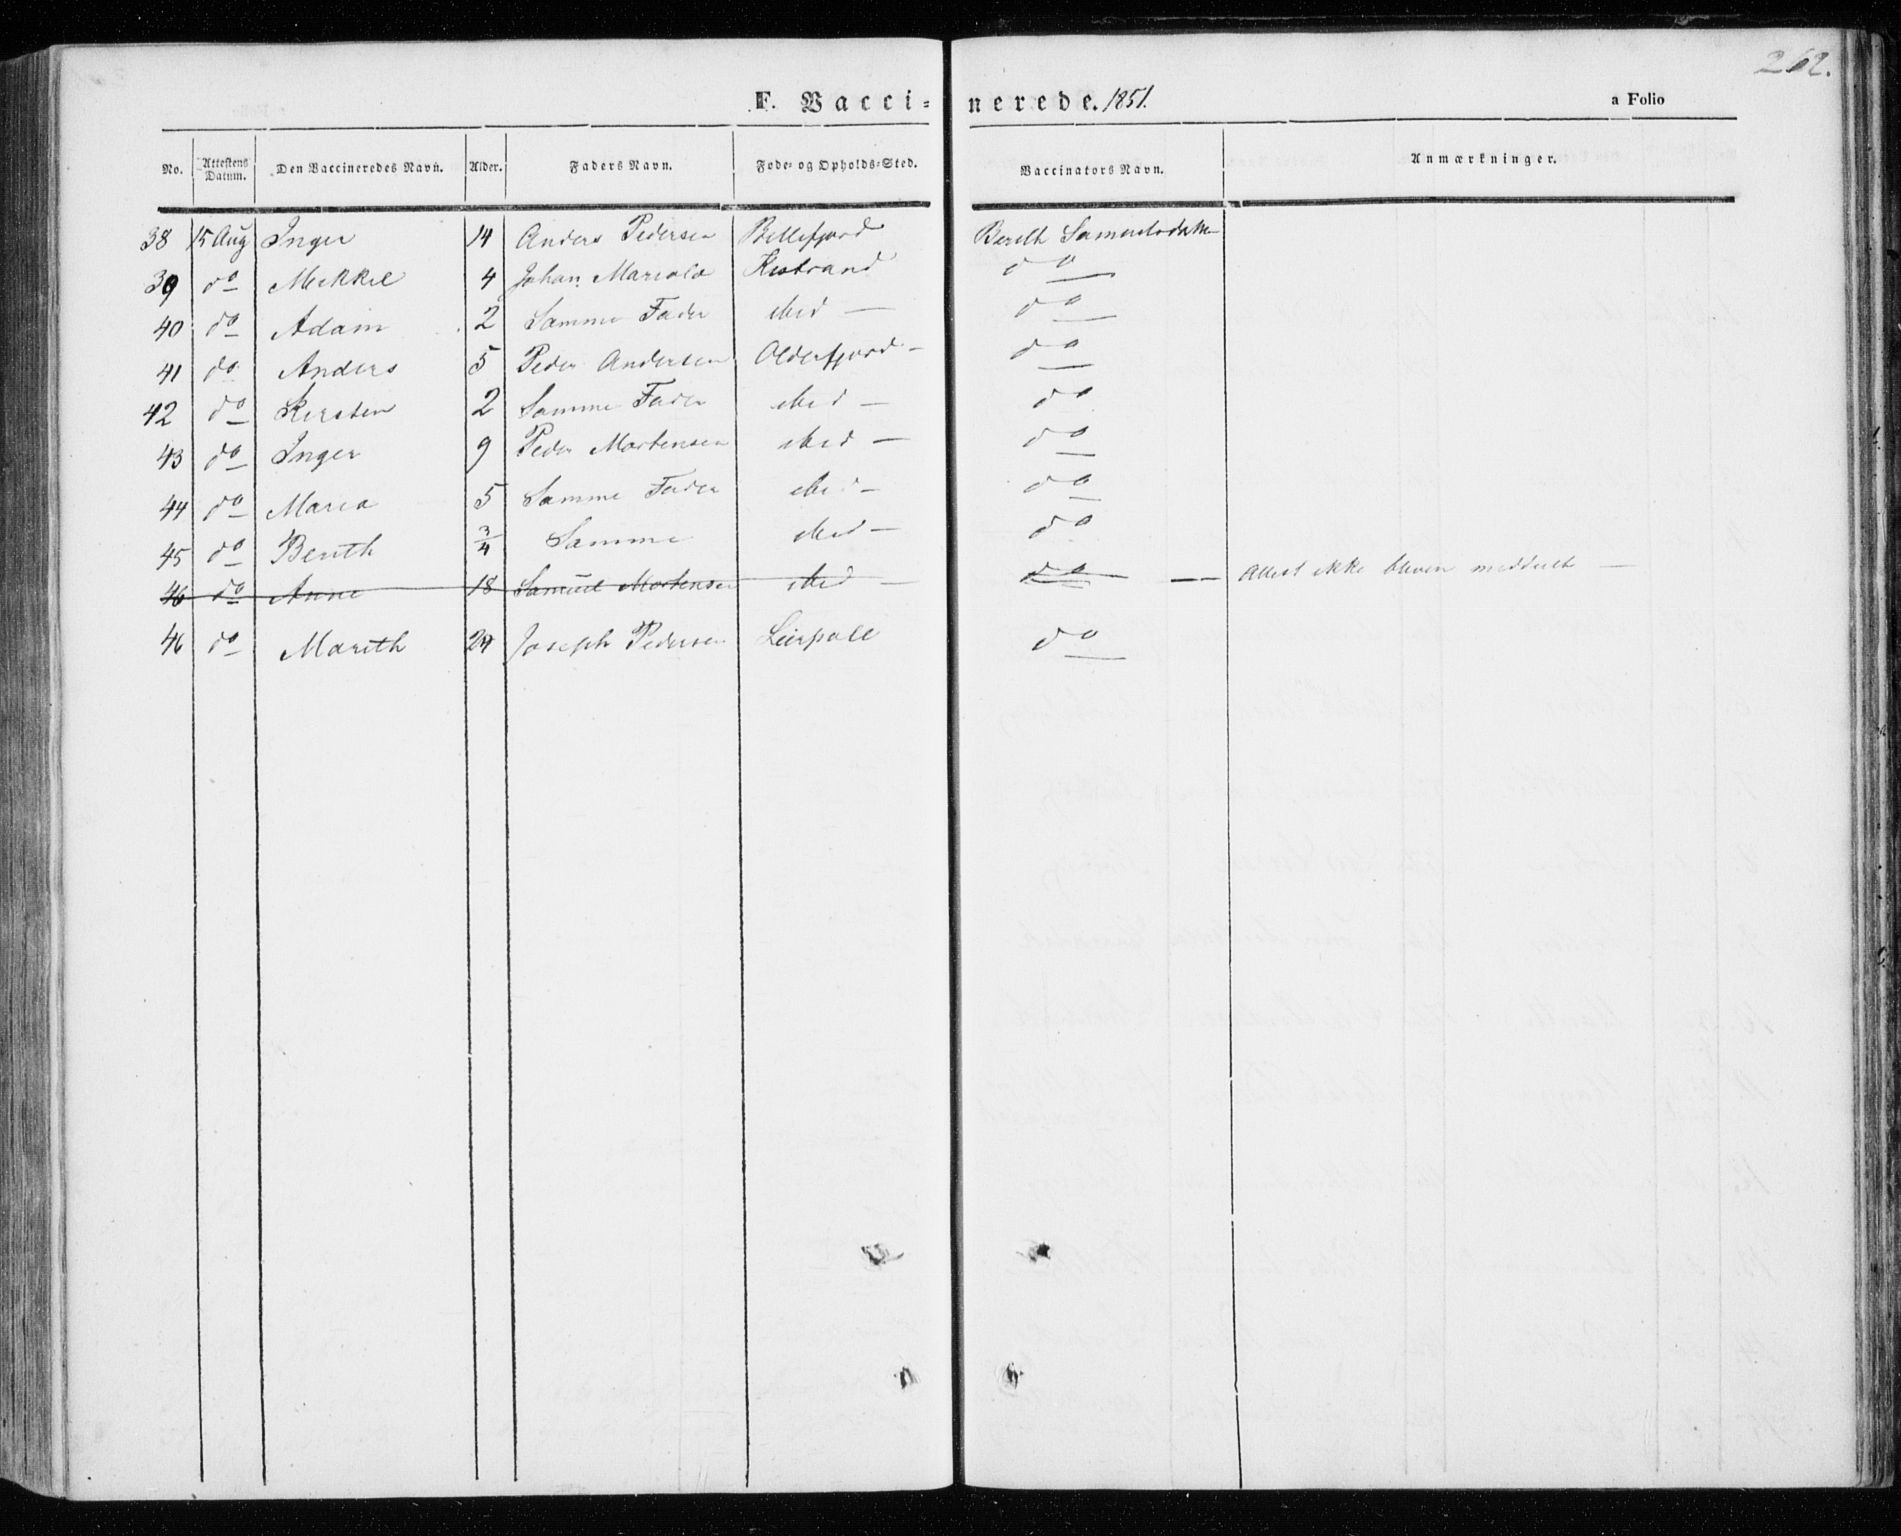 262.
F. Vaccinerede. 1851.
a Folio
No. | Attestens Datum. | Den Vaccineredes Navn. | Alder. | Faders Navn. | Føde- og Opholds-Sted. | Vaccinators Navn. | Anmærkninger.
38 | 15 Aug | Inger | 14 | Anders Pedersen | Billefjord | Bereth
39 | do | Mikkel | 4 | Johan | Kistrand | do
40 | do | Adam | 2 | Samme Fader | ibid — | do
41 | do | Anders | 5 | Peder Andersen | Olderfjord — | do
42 | do | Kirsten | 2 | Samme Fader | ibid — | do
43 | do | Inger | 9 | Peder Mortensen | ibid — | do
44 | do | Maria | 5 | Samme Fader | ibid — | do
45 | do | Berith | 3/4 | Samme | ibid — | do
46 | do | Anne | 18 | Samuel Mortensen | ibid — | do — | Attest ikke bleven meddeelt —
46 | do | Marith | 24 | Joseph Pedersen | Leirpoll | do